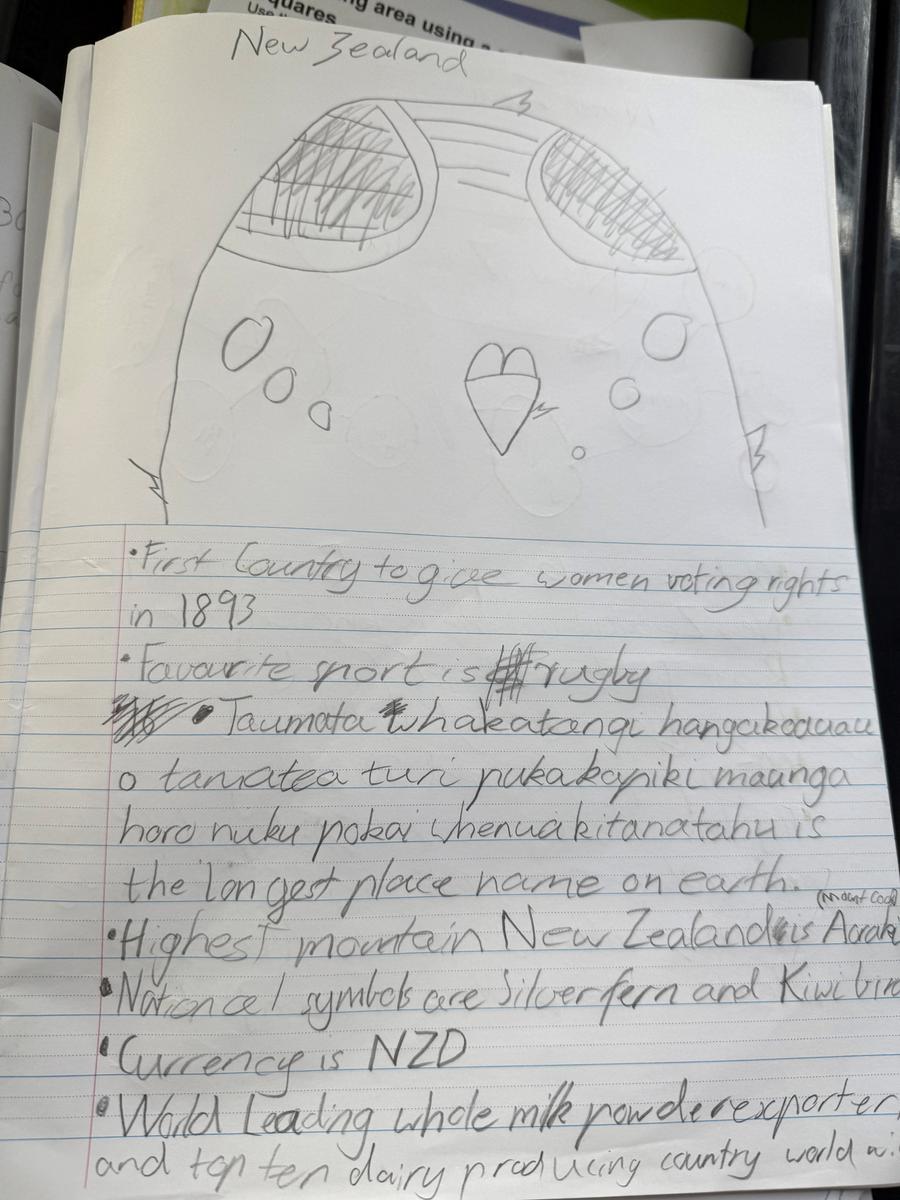 ng area using a
quares
New Zealand
• First Country to give women voting rights
in 1893
• Favourite sport is rugby
• Taumata whakatangi hangakoauau
o tamatea turi pukakapiki maunga
horo nuku pokai whenuakitanatahu is
the longest place name on earth.
(Mount Cook
• Highest mountain New Zealand is Aoraki
• National symbols are Silver fern and Kiwi bird
• Currency is NZD
• World Leading whole milk powder exporter
and top ten dairy producing country world wi